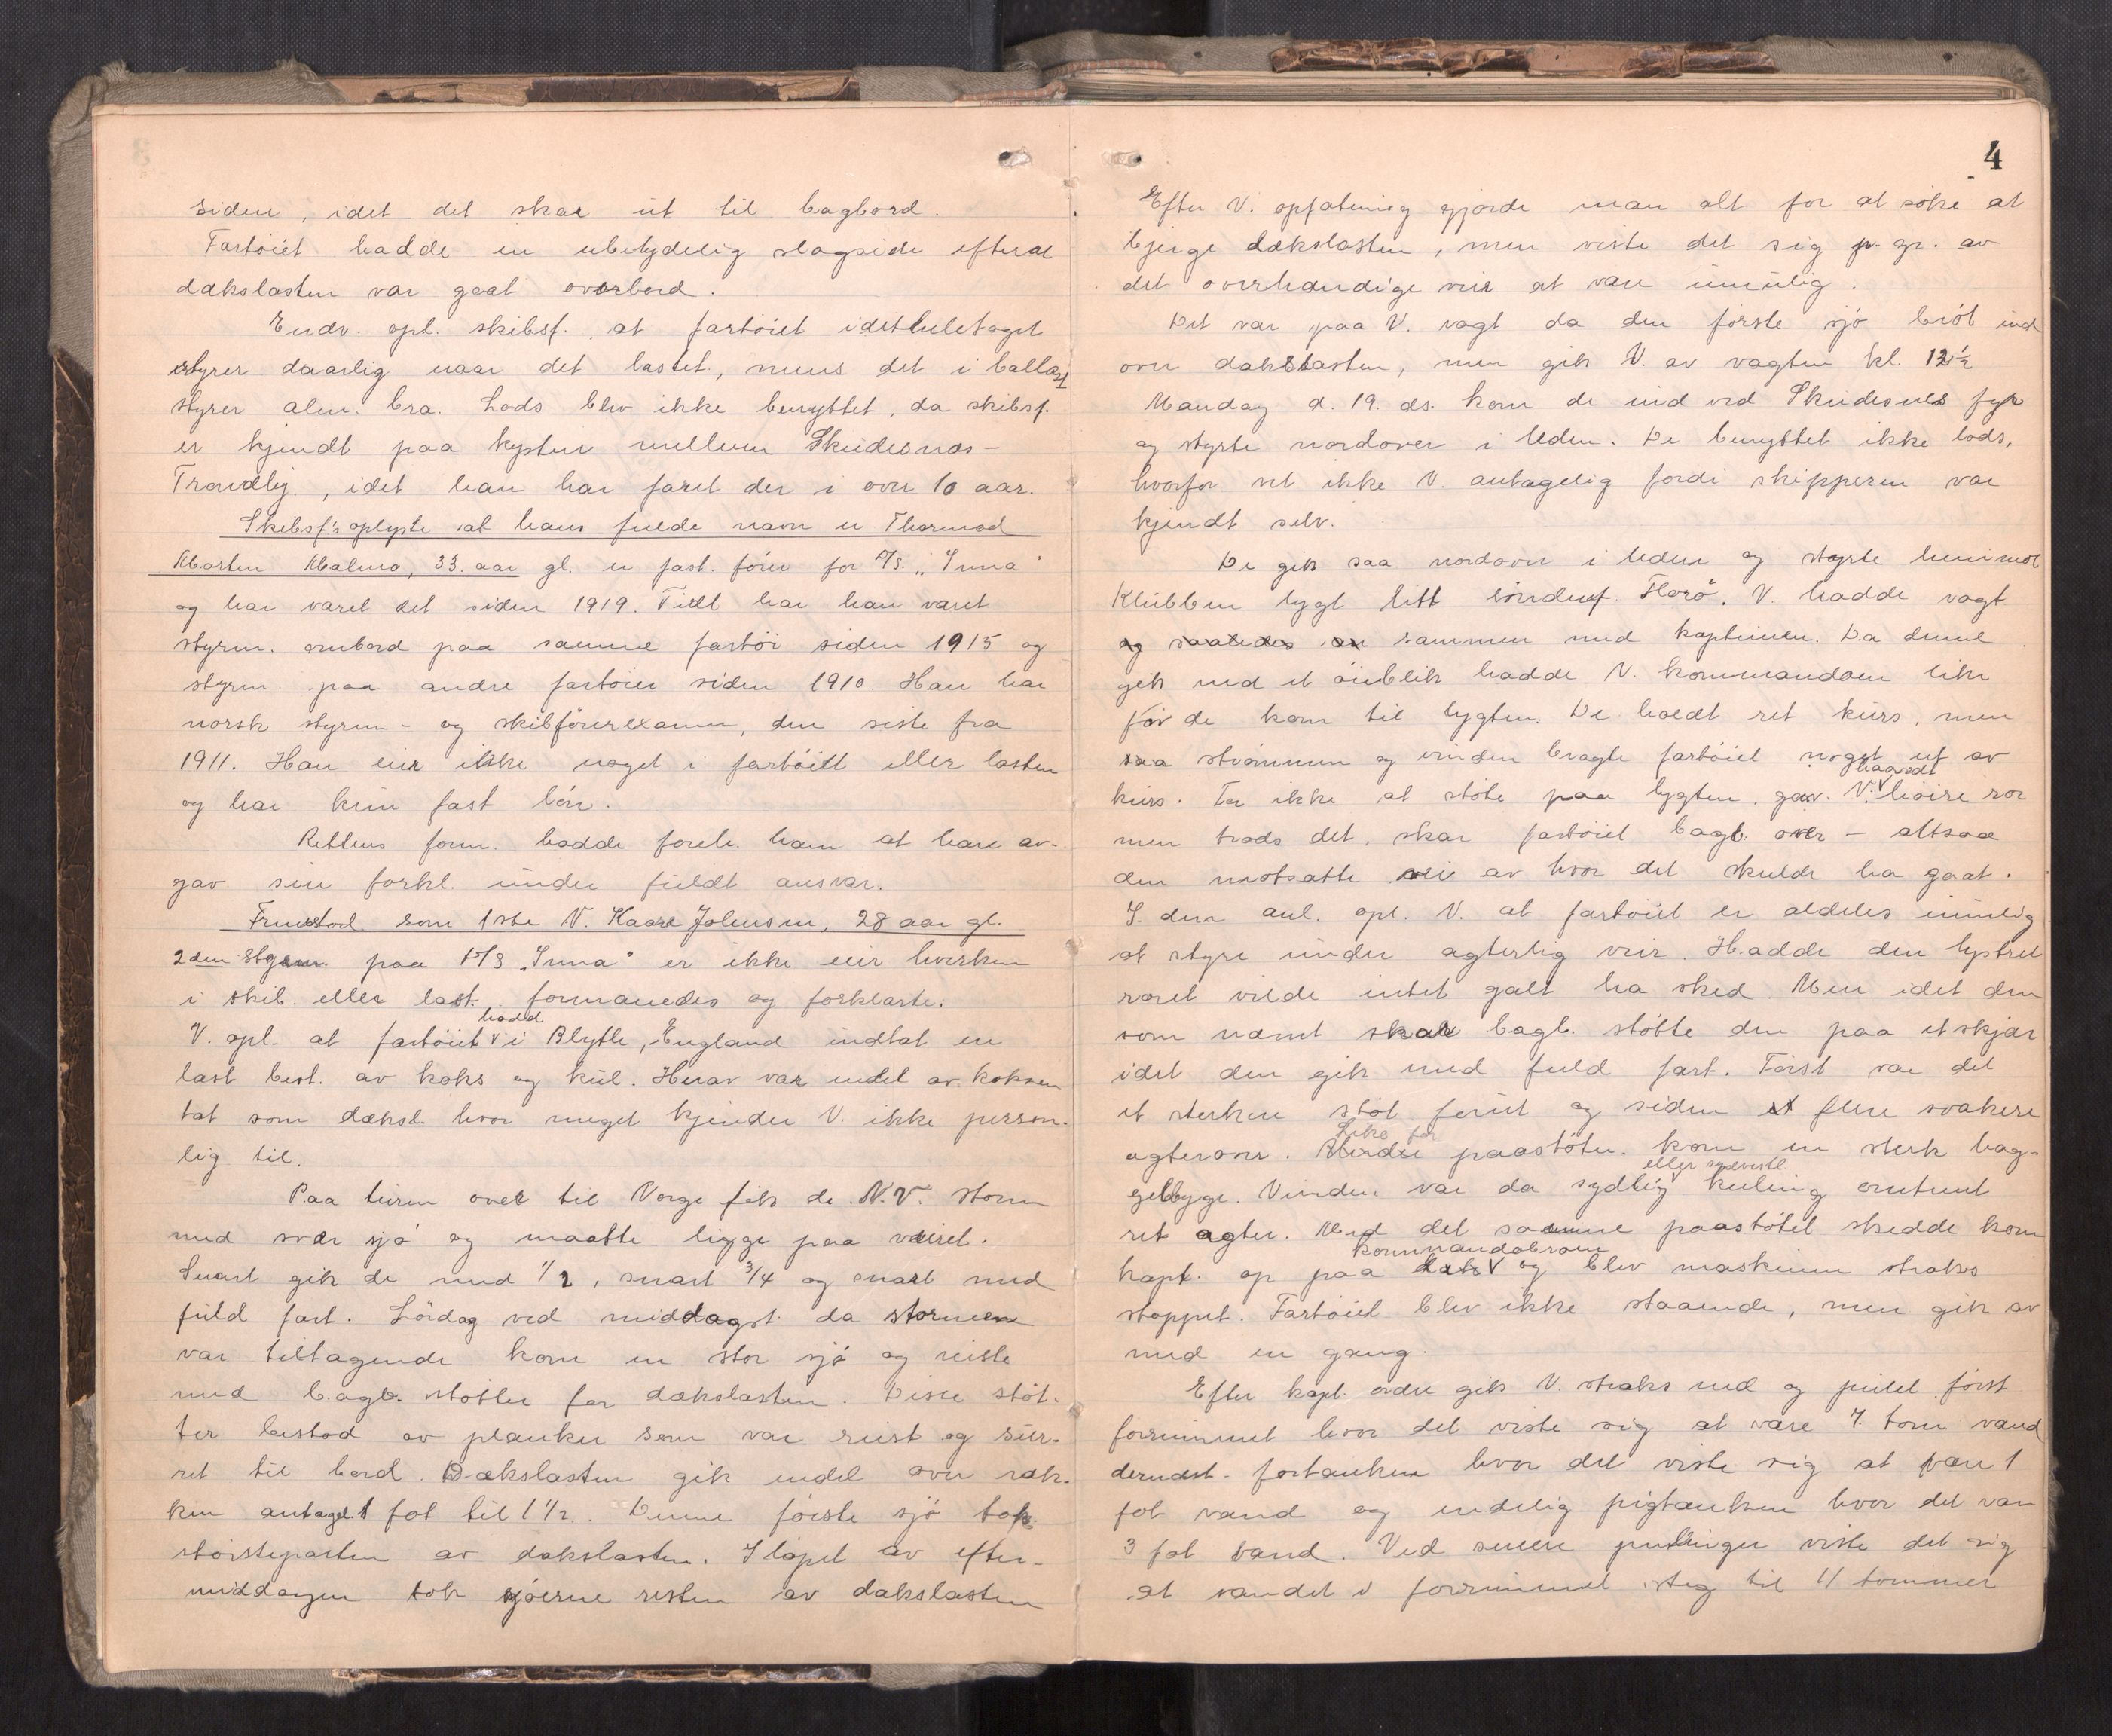 siden, idet det skar ut til bagbord.
Fartöiet hadde en ubetydelig slagside efterat
dækslasten var gaat overbord.
Endv. opl. skibsf. at fartöiet idetheletaget
styrer daarlig naar det lastet, mens det i ballast
styrer alm. bra. Lods blev ikke benyttet, da skibsf.
er kjendt paa kysten mellem Skudesnæs-
Trondhj., idet han har faret der i over 10 aar.
Skibsf's oplyste at hans fulde navn er Thormod
Morten Malmo, 33 aar gl. er fast förer for D/S. "Inna"
og har været det siden 1919. Tidl har han været
styrm. ombord paa samme fartöi siden 1915 og
styrm. paa andre fartöier siden 1910. Han har
norsk styrm- og skibförerexamen, den siste fra
1911. Han eier ikke noget i fartöiet eller lasten
og har kun fast lön.
Rettens form. hadde foreh. ham at have av-
gav sin forkl. under fuldt ansvar.
Fremstod som 1ste V. Kaare Johnsen, 28 aar gl.
2den Styrm. paa D/S "Inna" er ikke eier hverken
i skib. eller last. formanedes og forklarte.
V. opl. at fartöiet hadd i Blythe, England indtat en
last best. av koks og kul. Herav var endel av koksen
tat som dæksl. hvor meget kjender V. ikke person-
lig til.
Paa turen over til Norge fik de N.V. storm
med svær sjö og maatte ligge paa veiret.
Snart gik de med 1/2, snart 3/4 og snart med
fuld fart. Lördag ved middagst. da stormen
var tiltagende kom en stor sjö og reiste
med bagb. stötter for dækslasten. Disse stöt-
ter bestod av planker som var reist og sur-
ret til bord. Dækslasten gik endel over ræk-
ken antagel 1 fot til 1 1/2. Denne förste sjö tok
störsteparten av dækslasten. I löpet av efter-
middagen tok sjöerne resten av dækslasten
4
Efter V. opfatning gjorde man alt for at söke at
bjerge dækslasten, men viste det sig p. gr. av
det overhændige veir at være umulig.
Det var paa V. vagt da den förste sjö bröt ind
over dækslasten, men gik V. av vagten kl. 12 1/2
Mandag d. 19. ds. kom de ind ved Skudesnes fyr
og styrte nordover i leden. De benyttet ikke lods,
hvorfor vet ikke V. antagelig fordi skipperen var
kjendt selv.
De gik saa nordover i leden og styrte henimot
Klubben lygt litt Florö. V. hadde vagt
og saaledes en sammen med kapteinen. Da denne
gik ned et öieblik hadde V. kommandoen like
för de kom til lygten. De holdt ret kurs, men
saa strömmen og vinden bragte fartöiet noget ut av
kurs. For ikke at stöte paa lygten gav V. haardt höire ror
men trods det, skar fartöiet bagb. over - altsaa
den motsatte vei av hvor det skulde ha gaat.
I den anl. opl. V. at fartöiet er aldeles umulig
at styre under agterlig veir. Hadde den lystret
roret vilde intet galt ha sked. Men idet den
som nævnt skar bagb. stötte den paa et skjær
idet den gik med fuld fart. Först var det
et sterkere stöt forut og siden et flere svakere
agterover. Like för paastöten kom en sterk hag-
gelbyge. Vinden var da sydlig eller sydvestl. kuling omtrent
ret agter. Med det samme paastötet skedde kom
kapt. op paa kommandobroen og blev maskinen straks
stoppet. Fartöiet blev ikke staaende, men gik av
med en gang.
Efter kapt. ordre gik V. straks ned og peilet först
forrummet hvor det viste sig at være 7 tom vand
dernæst fortanken hvor det viste sig at være 1
fot vand og endelig pigtanken hvor det var
3 fot vand. Ved senere peilinger viste det sig
at vandet i forrummet steg til 11 tommer